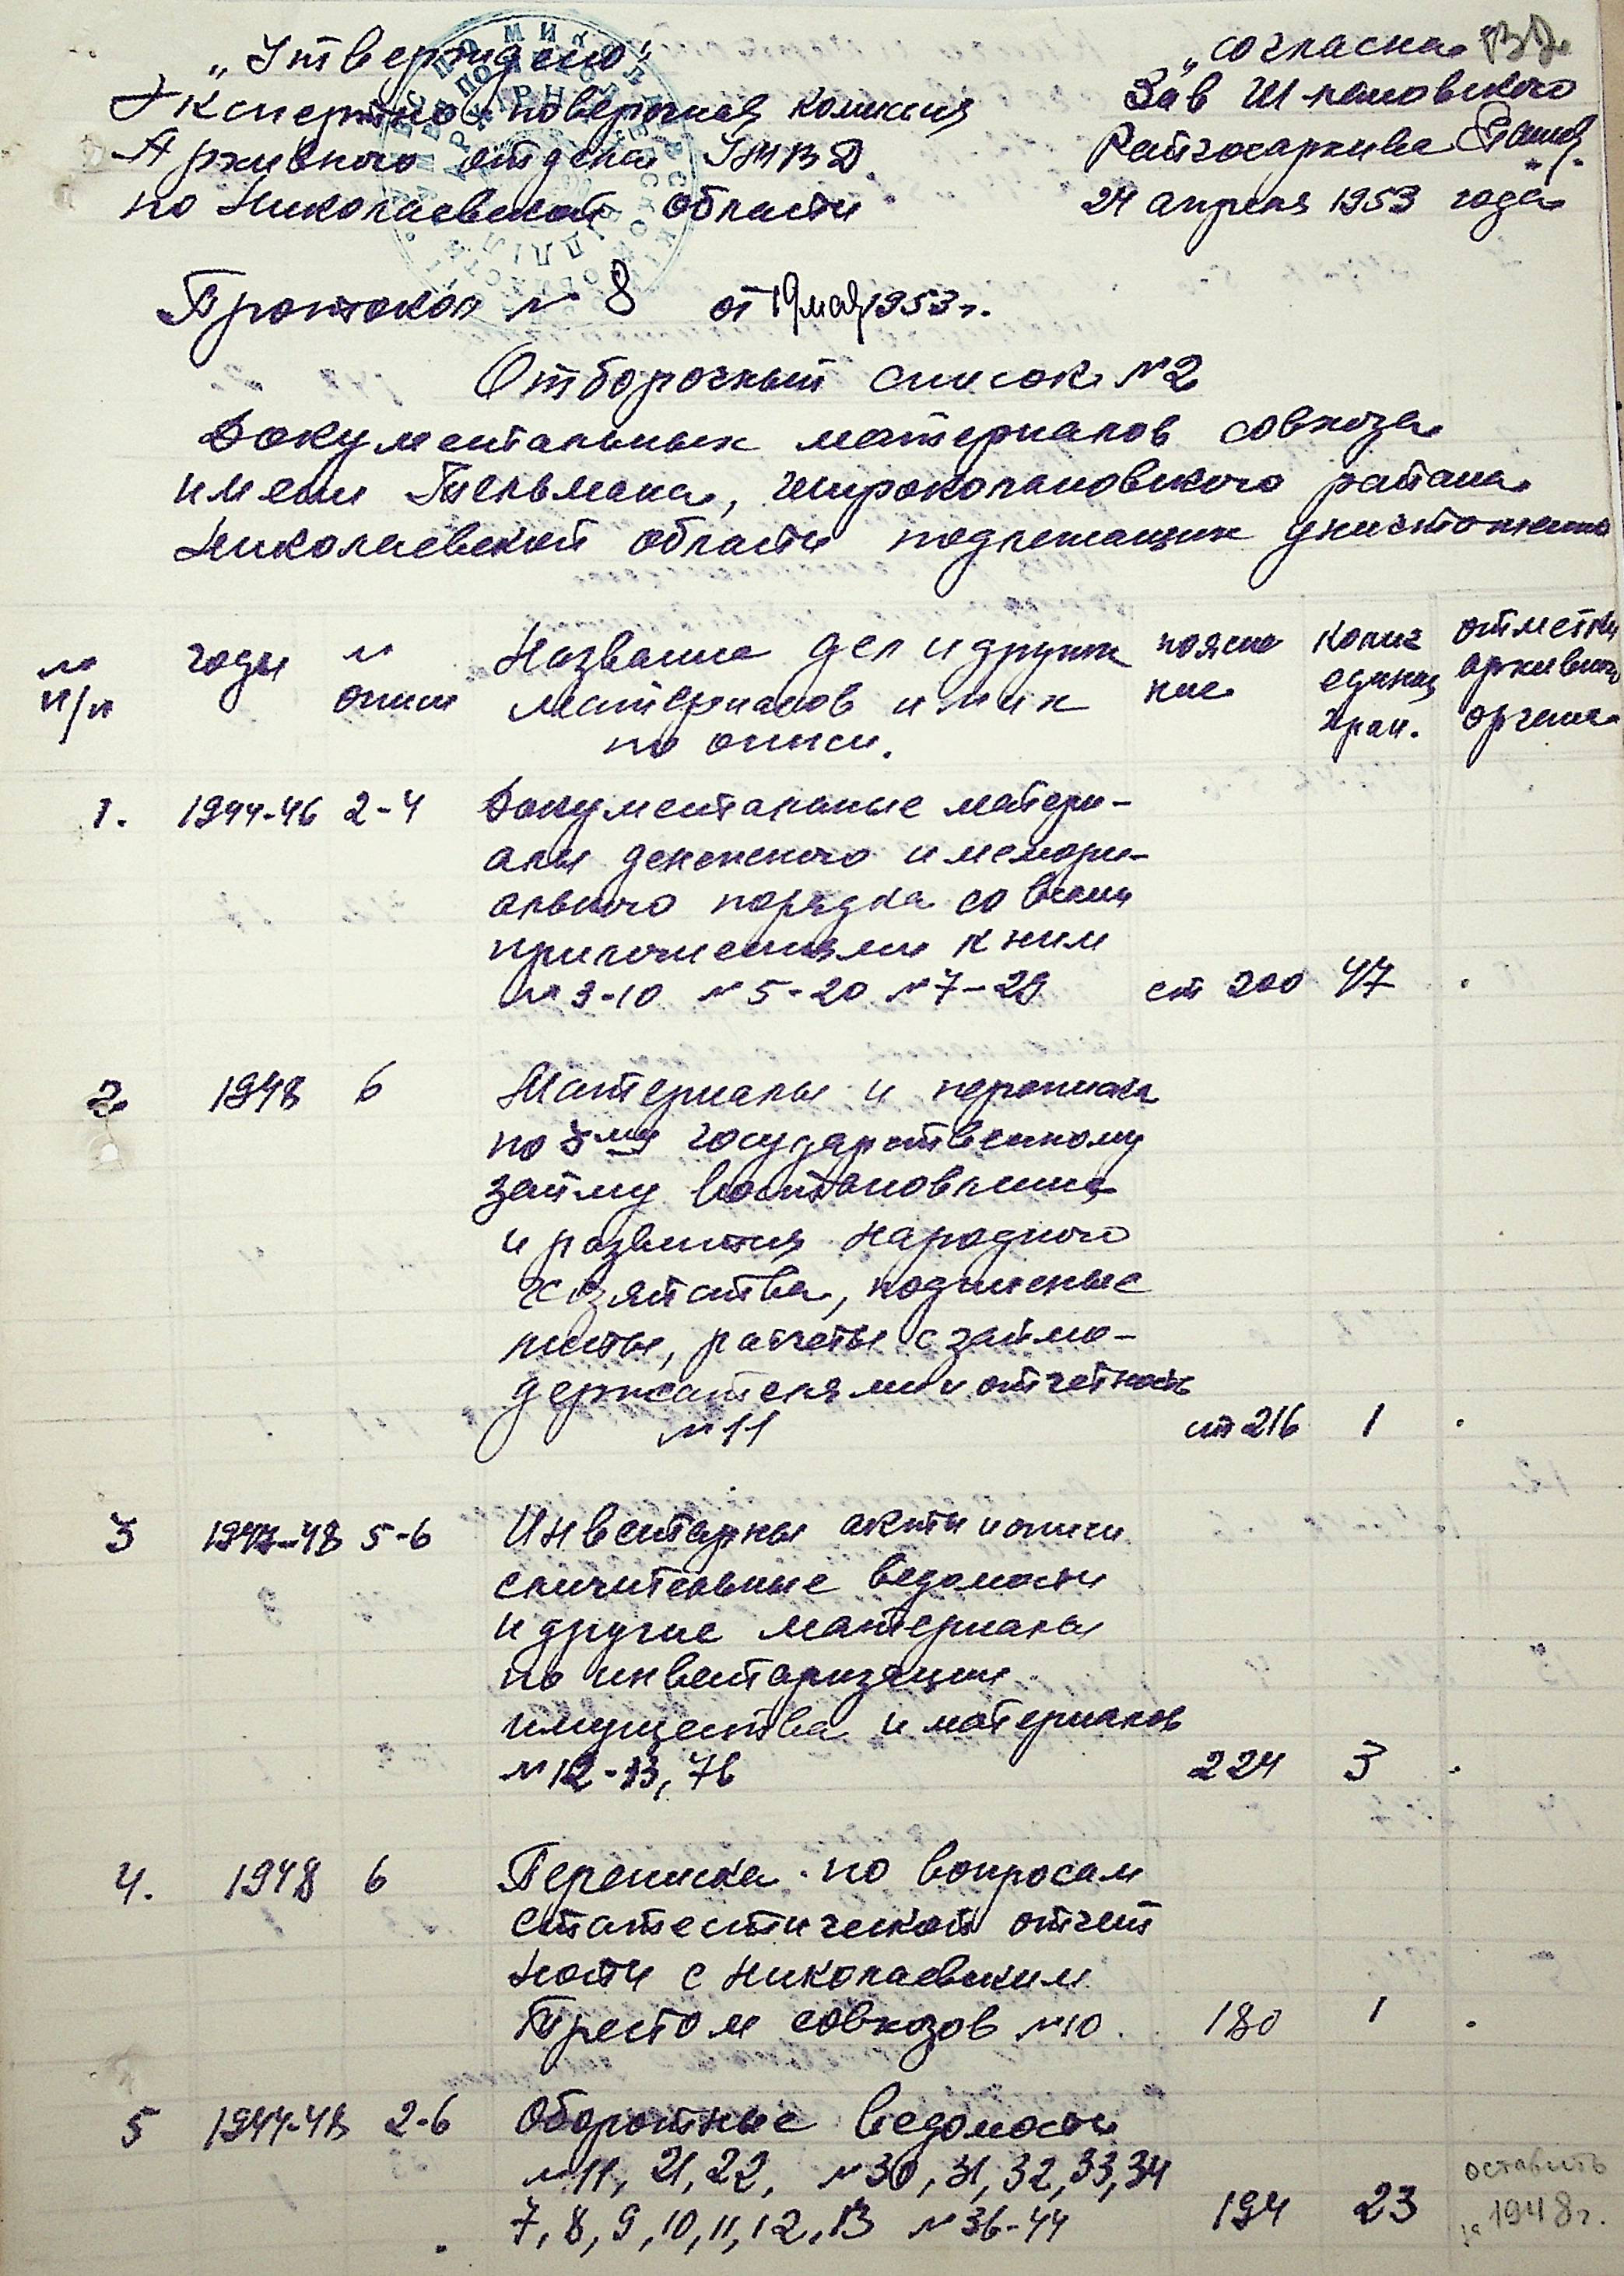 „Утверждено"
Экспертно-поверочная комиссия
Архивного отдела УМВД
по Николаевской области
„согласна"
Зав Ш-лановского
Райгосархива
24 апреля 1953 года
Протокол № 8 от 19 мая 1953 г.
Отборочный список № 2
Документальных материалов совхоза
имени Тельмана, Широколановского района
Николаевской области подлежащих уничтожению
№ п/п
годы
№ описи
Название дел и других
материалов и них
по описи.
поясне
ние
колич
единиц
хран.
отметки
архивного
органа
1. 1944-46 2-4 Документальные матери-
алы денежного и мемори-
ального порядка со всеми
приложениями к ним
№ 3-10 № 5-20 № 7-29 ст 200 47
2 1948 6 Материалы и переписка
по 3му государственному
займу восстановления
и развития народного
хозяйства, подписные
листы, расчеты с займо-
держателями и отчетность
№ 11 ст 216 1
3 1947-48 5-6 Инвентарны акты и описи
сличительные ведомости
и другие материалы
по инвентаризации
имущества и материалов
№ 12-13, 76 224 3
4. 1948 6 Переписка по вопросам
статестической отчет
ности с Николаевским
Трестом совхозов № 10. 180 1
5 1944-48 2-6 Оборотные ведомости
№ 11, 21, 22, № 30, 31, 32, 33, 34
7, 8, 9, 10, 11, 12, 13 № 36-44 194 23
оставить
за 1948 г.